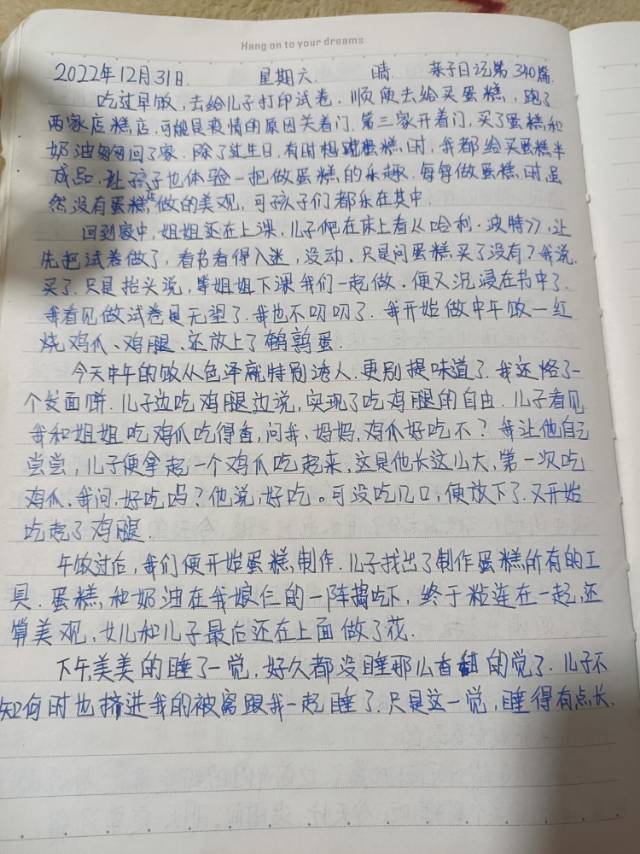 Hang on to your dreams
2022年12月31日 星期六 晴 亲子日记第340篇
吃过早饭,去给儿子打印试卷.顺便去给买蛋糕,跑了
两家店糕店,可能是疫情的原因关着门.第三家开着门,买了蛋糕和
奶油匆匆回了家.除了过生日,有时想吃蛋糕时,我都给买蛋糕半
成品.让孩子也体验一把做蛋糕的乐趣.每每做蛋糕时虽
然没有蛋糕店做的美观,可孩子们都乐在其中.
回到家中,姐姐还在上课,儿子爬在床上看《哈利·波特》,让
先把试卷做了,看书看得入迷,没动.只是问蛋糕买了没有?我说,
买了.只是抬头说,等姐姐下课我们一起做.便又沉浸在书中了.
我看见做试卷是无望了.我也不叨叨了.我开始做中午饭—红
烧鸡爪、鸡腿.还放上了鹌鹑蛋.
今天中午的饭从色泽就特别诱人.更别提味道了.我还烙了一
个发面饼.儿子边吃鸡腿边说,实现了吃鸡腿的自由.儿子看见
我和姐姐吃鸡爪吃得香,问我,妈妈,鸡爪好吃不?我让他自己
尝尝,儿子便拿起一个鸡爪吃起来,这是他长这么大,第一次吃
鸡爪.我问,好吃吗?他说,好吃。可没吃几口,便放下了.又开始
吃起了鸡腿.
午饭过后,我们便开始蛋糕制作.儿子找出了制作蛋糕所有的工
具.蛋糕和奶油在我娘仨的一阵捣吃下,终于粘连在一起,还
算美观,女儿和儿子最后还在上面做了花.
下午,美美的睡了一觉,好久都没睡那么香甜的觉了.儿子不
知何时也挤进我的被窝跟我一起睡了.只是这一觉,睡得有点长.